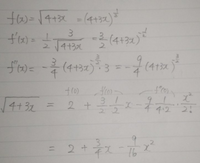 f(x) = √4+3x = (4+3x)^½
f'(x) = 1/2 · 3/√4+3x = 3/2 (4+3x)^-½
f''(x) = -3/4 (4+3x)^-3/2 · 3 = -9/4 (4+3x)^-3/2
√4+3x = 2 + 3/2 · 1/2 x - 9/4 · 1/4·2 · x²/2!
= 2 + 3/4 x - 9/16 x²